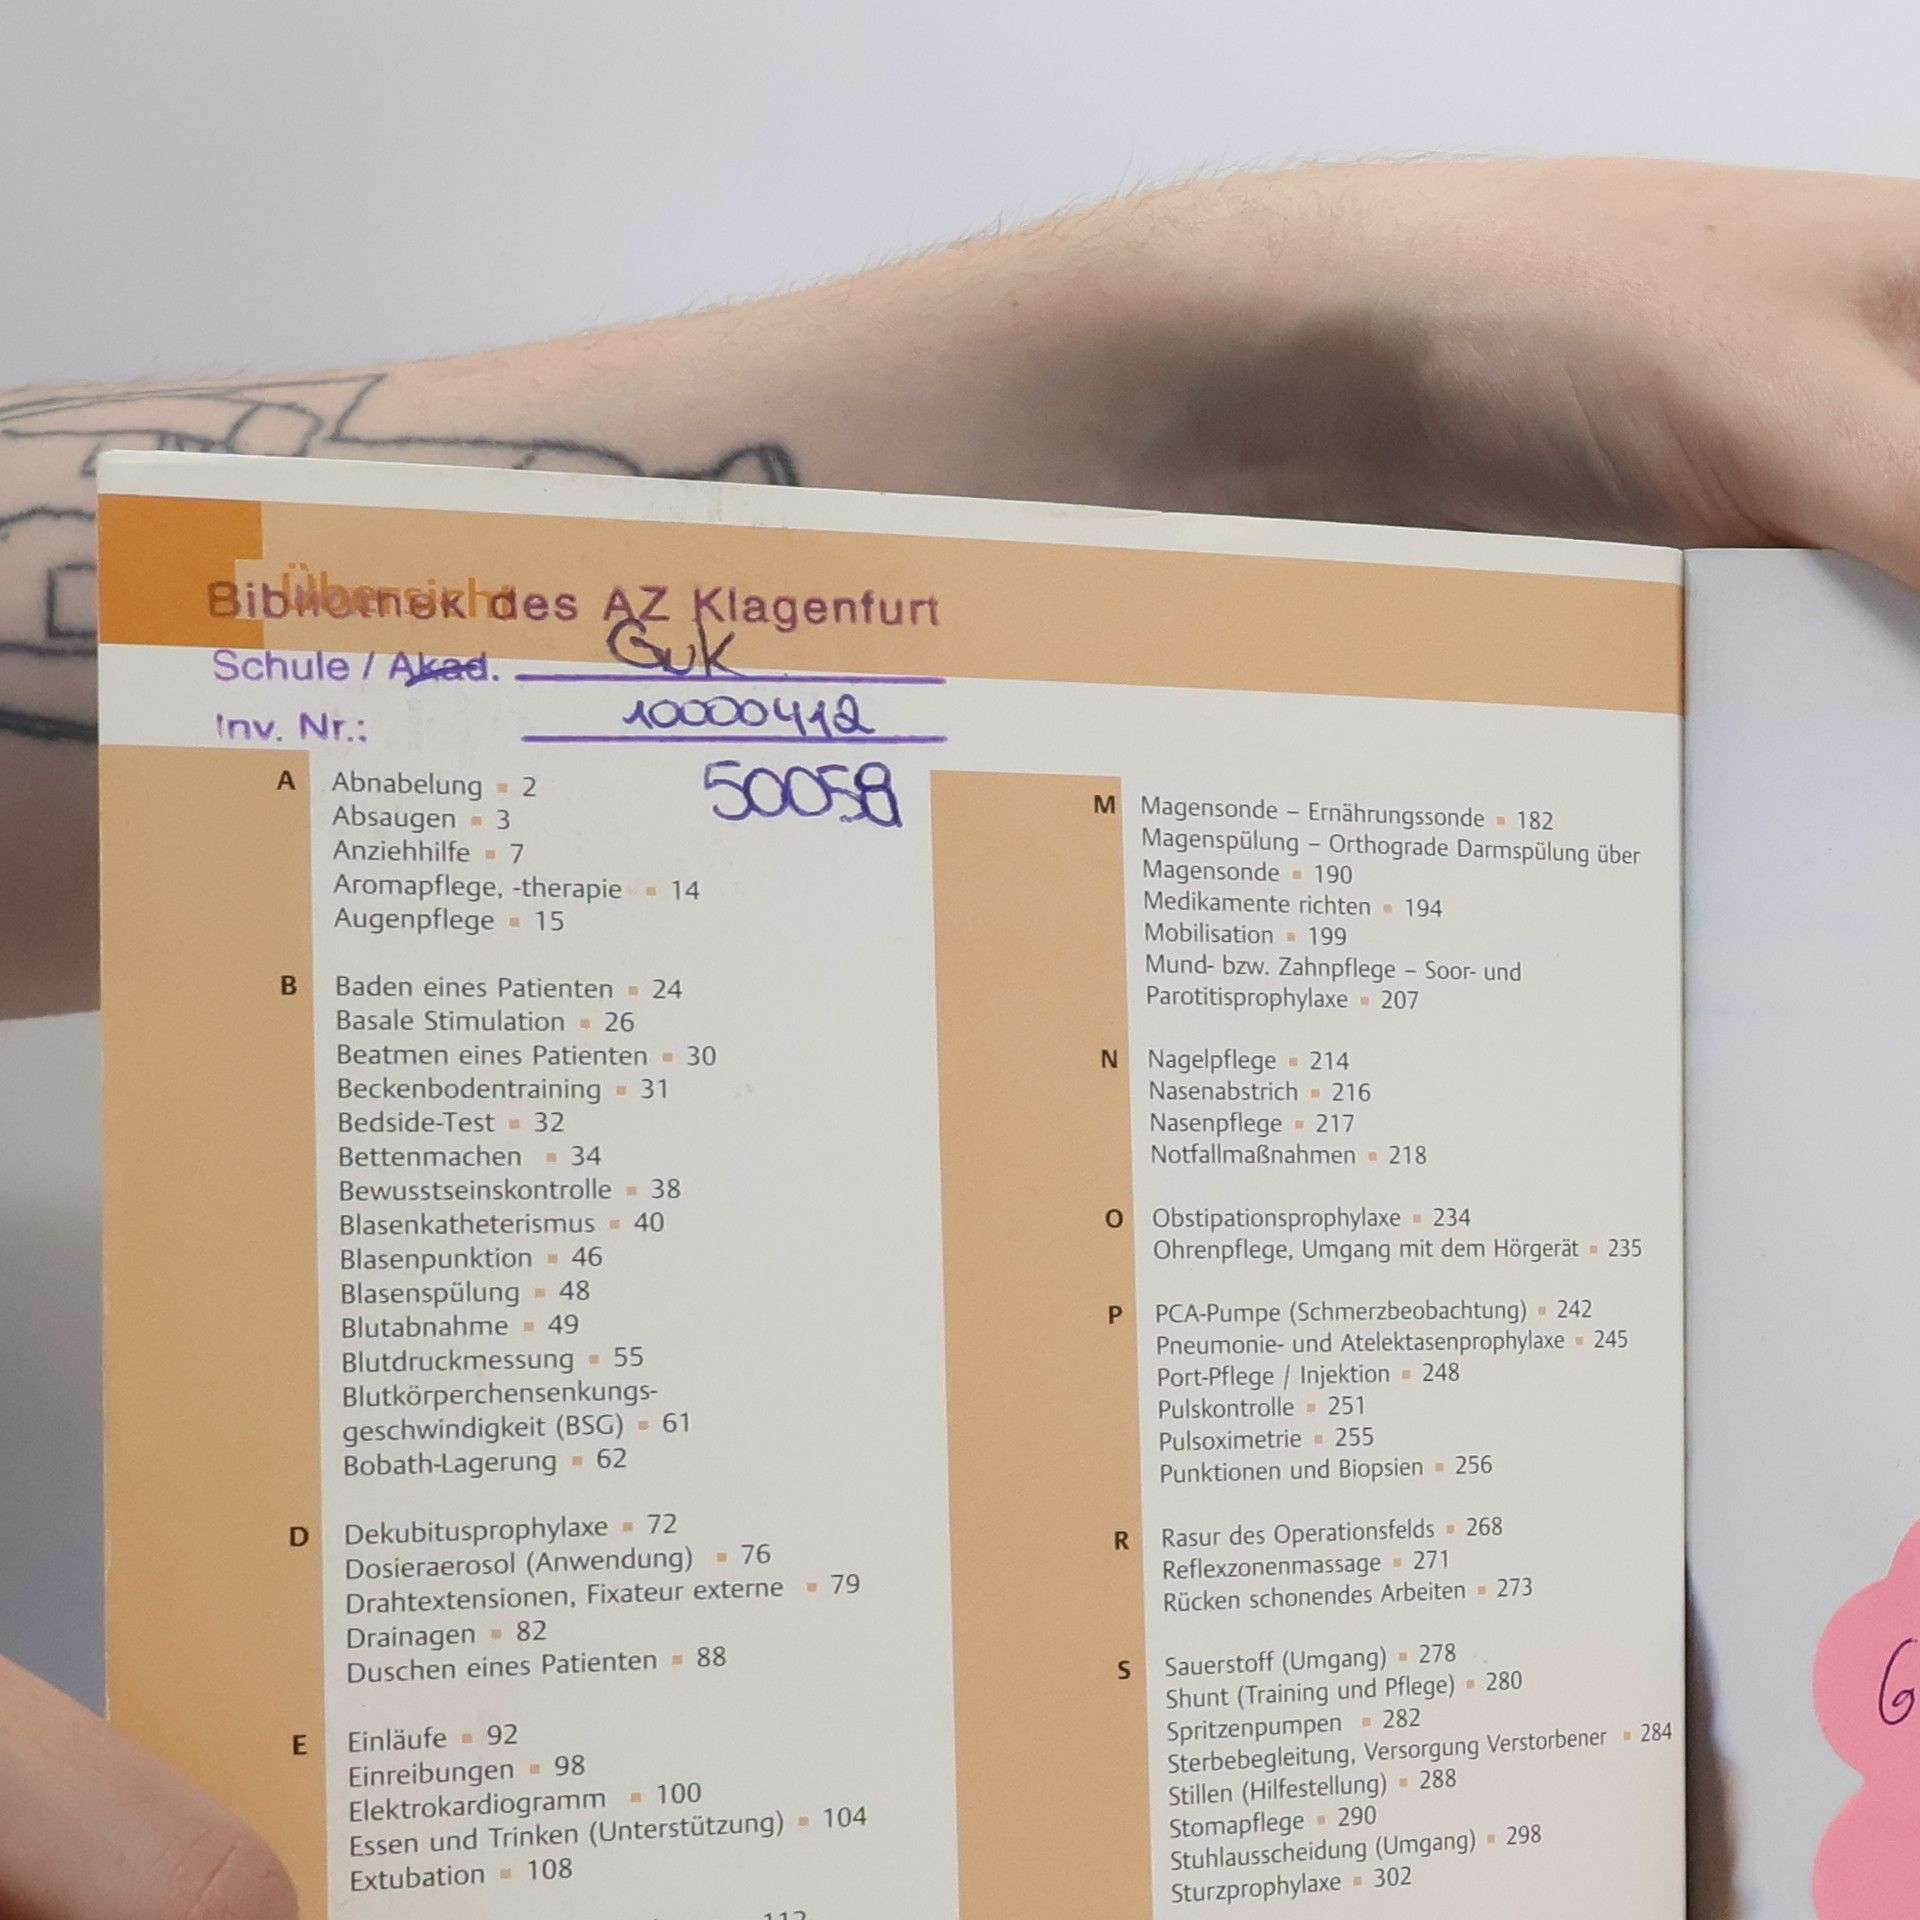 Übersicht
Bibliothek des AZ Klagenfurt
Schule / Akad. GuK
Inv. Nr.: 10000412
50058
A Abnabelung ▪ 2
Absaugen ▪ 3
Anziehhilfe ▪ 7
Aromapflege, -therapie ▪ 14
Augenpflege ▪ 15
B Baden eines Patienten ▪ 24
Basale Stimulation ▪ 26
Beatmen eines Patienten ▪ 30
Beckenbodentraining ▪ 31
Bedside-Test ▪ 32
Bettenmachen ▪ 34
Bewusstseinskontrolle ▪ 38
Blasenkatheterismus ▪ 40
Blasenpunktion ▪ 46
Blasenspülung ▪ 48
Blutabnahme ▪ 49
Blutdruckmessung ▪ 55
Blutkörperchensenkungs-
geschwindigkeit (BSG) ▪ 61
Bobath-Lagerung ▪ 62
D Dekubitusprophylaxe ▪ 72
Dosieraerosol (Anwendung) ▪ 76
Drahtextensionen, Fixateur externe ▪ 79
Drainagen ▪ 82
Duschen eines Patienten ▪ 88
E Einläufe ▪ 92
Einreibungen ▪ 98
Elektrokardiogramm ▪ 100
Essen und Trinken (Unterstützung) ▪ 104
Extubation ▪ 108
M Magensonde – Ernährungssonde ▪ 182
Magenspülung – Orthograde Darmspülung über
Magensonde ▪ 190
Medikamente richten ▪ 194
Mobilisation ▪ 199
Mund- bzw. Zahnpflege – Soor- und
Parotitisprophylaxe ▪ 207
N Nagelpflege ▪ 214
Nasenabstrich ▪ 216
Nasenpflege ▪ 217
Notfallmaßnahmen ▪ 218
O Obstipationsprophylaxe ▪ 234
Ohrenpflege, Umgang mit dem Hörgerät ▪ 235
P PCA-Pumpe (Schmerzbeobachtung) ▪ 242
Pneumonie- und Atelektasenprophylaxe ▪ 245
Port-Pflege / Injektion ▪ 248
Pulskontrolle ▪ 251
Pulsoximetrie ▪ 255
Punktionen und Biopsien ▪ 256
R Rasur des Operationsfelds ▪ 268
Reflexzonenmassage ▪ 271
Rücken schonendes Arbeiten ▪ 273
S Sauerstoff (Umgang) ▪ 278
Shunt (Training und Pflege) ▪ 280
Spritzenpumpen ▪ 282
Sterbebegleitung, Versorgung Verstorbener ▪ 284
Stillen (Hilfestellung) ▪ 288
Stomapflege ▪ 290
Stuhlausscheidung (Umgang) ▪ 298
Sturzprophylaxe ▪ 302